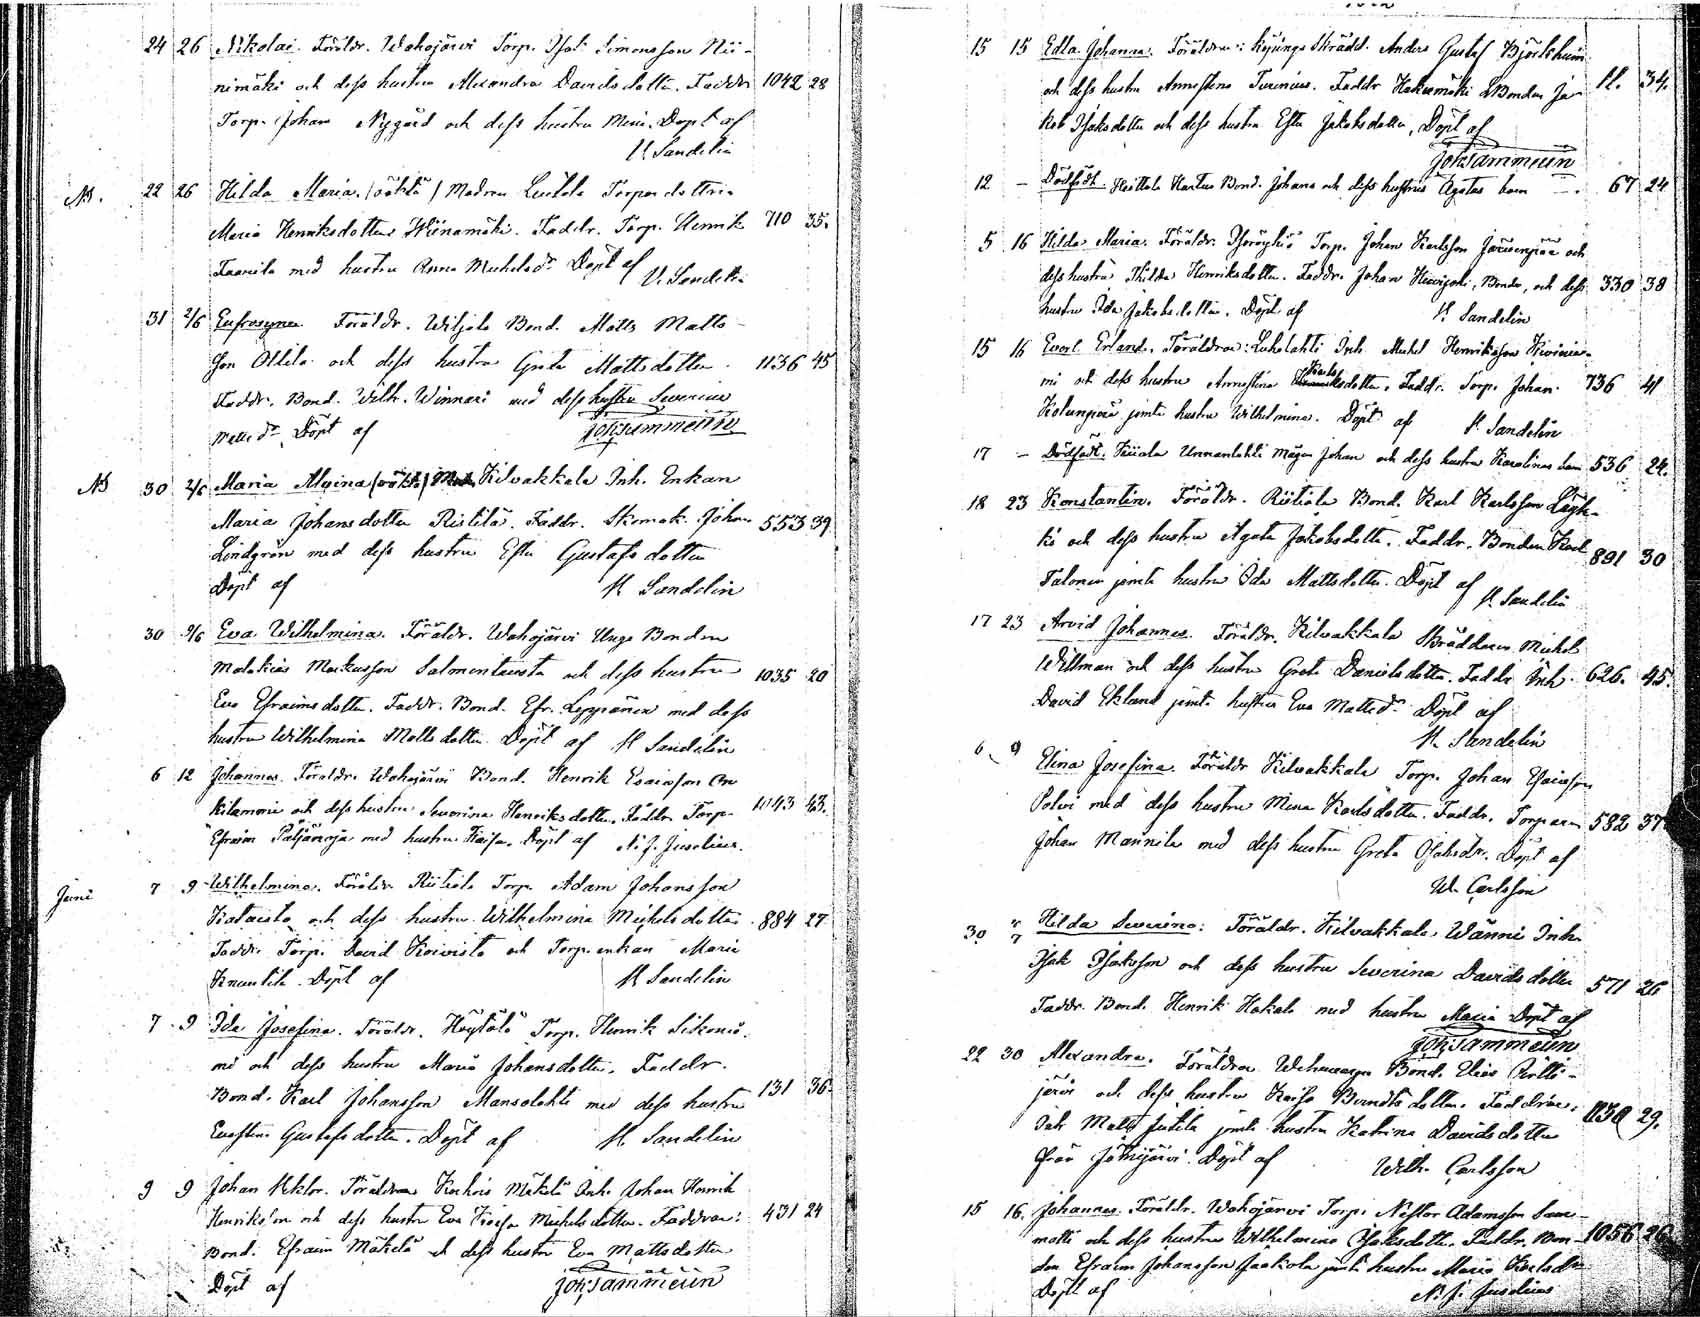 24 26 Nikolai. Föräldr. Wahojärvi Torp. Isak Simonsson Nii-
nimäki och dess hustru Alexandra Davidsdotter. Faddr 1042 28
Torp. Johan Nygård och dess hustru Maria. Döpt af
K. Sandelin
NB. 22 26 Hilda Maria. (oäkta) Modren Luttola Torpar dottern
Maria Henriksdotter Niinamäki. Faddr. Torp. Henrik 710 35.
med hustru Anna Michelsdr Döpt af
K. Sandelin
31 2/6 Eufrosyne Föräldr. Wiljola Bond. Matts Matts-
son Ollila och dess hustru Greta Mattsdotter. 1136 45
Faddr. Bond. Wilh. Winnari med dess hustru Severina
Mattsdr Döpt af Joh. Sammelin
NB 30 2/6 Maria Alvina (oäkta) Kilvakkala Inh. Enkan
Maria Johansdotter Ristilä. Faddr. Skomak. Johan 553 39
Lindgren med dess hustru Efva Gustafsdotter
Döpt af K. Sandelin
30 2/6 Eva Wilhelmina. Föräldr. Wahojärvi Unge Bonden
Malakias Markusson Salmentausta och dess hustru 1035 20
Eva Efraimsdotter. Faddr. Bond. Efr. Leppänen med dess
hustru Wilhelmina Mattsdotter. Döpt af K. Sandelin
6 12 Johannes. Föräldr. Wahojärvi Bond. Henrik Esaiasson
och dess hustru Severina Henriksdotter. Faddr. Torp. 1043 43.
Efraim med hustru Kaisa. Döpt af N. J. Juselius.
Juni 7 9 Wilhelmina. Föräldr Riitiala Torp. Adam Johansson
Kataisto och dess hustru Wilhelmina Michelsdotter 884 27
Faddr. Torp. David Koivisto och Torp. enkan Maria
Knuutila. Döpt af K Sandelin
7 9 Ida Josefina. Föräldr. Höytölä Torp. Henrik Sikonie-
mi och dess hustru Maria Johansdotter. Faddr.
Bond. Karl Johansson Mansolahti med dess hustru 131 36
Gustafsdotter. Döpt af K. Sandelin
9 9 Johan Viktor. Föräldrar Karhois Mäkelä Inh. Johan Henrik
Henriksson och dess hustru Eva Kaisa Michelsdotter. Faddrar: 431 24
Bond. Efraim Mäkelä och dess hustru Eva Mattsdotter
Döpt af Joh. Sammelin
15 15 Edla Johanna. Föräldrar: Skrädd. Anders Gustaf Björkheim
och dess hustru Annastina Turenius. Faddr Bonden Ja- 11. 34.
kob Isaksdotter och dess hustru Efva Jakobsdotter, Döpt af
Joh. Sammelin
12 – Dödfödt. Heittola Bond. Johans och dess hustrus Agatas barn –. 67 24
5 16 Hilda Maria. Föräldr. Torp. Johan Karlsson Järvenpää och
dess hustru Hilda Henriksdotter. Faddr. Johan, Bonde, och dess 330 38
hustru Ida Jakobsdotter. Döpt af K. Sandelin
15 16 Evert Erland. Föräldrar: Luhalahti Inh. Michel Henriksson Kivinie-
mi och dess hustru Annastina Karlsdotter. Faddr. Torp. Johan 736 41
jemte hustru Wilhelmina. Döpt af K. Sandelin
17 – Dödfödt. Kiiala Unnanlahti Mågen Johan och dess hustru Karolinas barn 536 24.
18 23 Konstantin. Föräldr. Riitiala Bond. Karl Karlsson Läyk-
kö och dess hustru Agata Jakobsdotter. Faddr. Bonden Karl 891 30
Talonen jemte hustru Ida Mattsdotter. Döpt af K. Sandelin
17 23 Arvid Johannes. Föräldr. Kilvakkala Skräddaren Michel
Willman och dess hustru Greta Danielsdotter. Faddr Inh. 626. 45.
David Eklund jemte hustru Eva Mattsdr Döpt af
K. Sandelin
6 9 Elina Josefina. Föräldr Kilvakkala Torp. Johan Esaiasson
Polvi med dess hustru Mina Karlsdotter. Faddr. Torparen 582 37
Johan Mannila med dess hustru Greta Isaksdr. Döpt af
W. Carlsson
30 Hilda Severina: Föräldr. Kilvakkala, Wänni Inh.
Isak Isaksson och dess hustru Severina Davidsdotter 571 26
Faddr. Bond. Henrik Hakala med hustru Maria Döpt af
Joh. Sammelin
22 30 Alexandra. Föräldrar Wehuvarpe Bond. Elias
järvi och dess hustru Kaisa Berndtsdotter. Faddrar: 1130 29.
Inh Matts Jutila jemte hustru Katrina Davidsdotter
från Jämijärvi. Döpt af Wilh. Carlsson
15 16. Johannes. Föräldr. Wahojärvi Torp. Nestor Adamsson Sam-
matti och dess hustru Wilhelmina Isaksdotter. Faddr. Bon- 1056 26
den Efraim Johansson Jaakola jemte hustru Maria Karlsdr
Döpt af N. J. Juselius